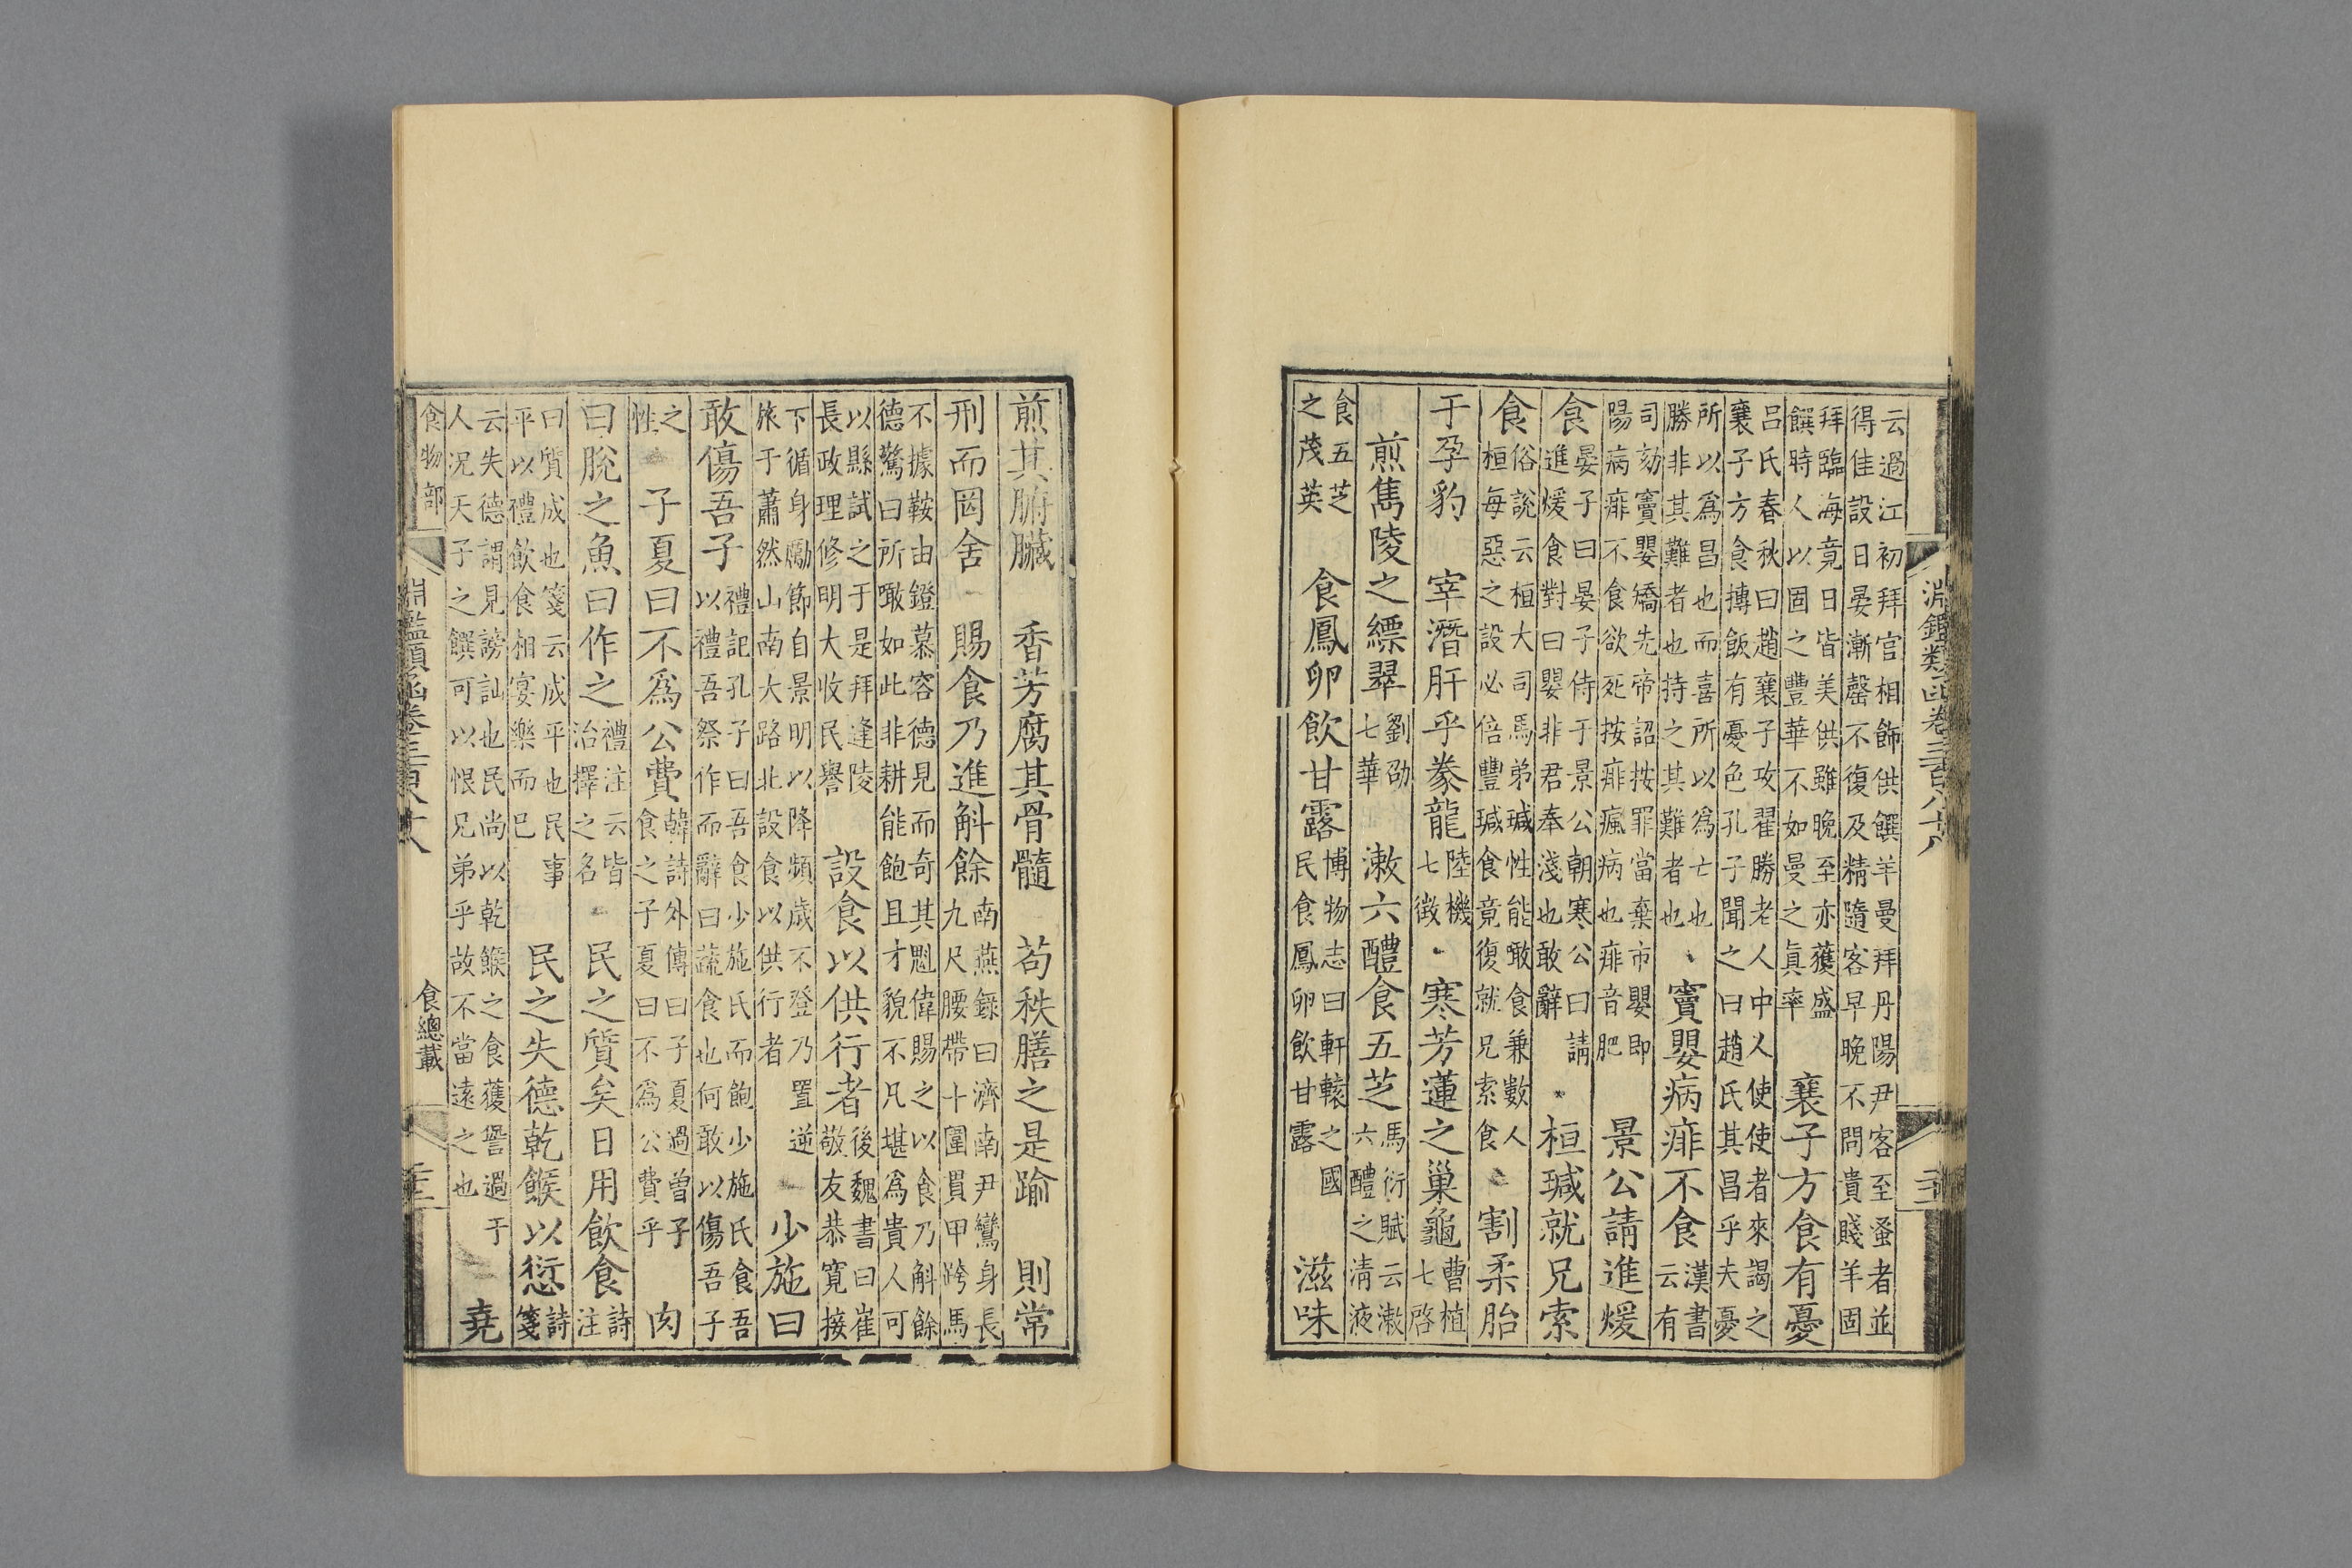 淵鑑類函卷三百八十八
云過江初拜官相飾供饌羊曼拜丹陽尹客至蚤者並
得佳設日晏漸罄不復及精隨客早晚不問貴賤羊固
拜臨海竟日皆美供雖晚至亦獲盛
饌時人以固之豐華不如曼之真率
襄子方食有憂
呂氏春秋曰趙襄子攻翟勝老人中人使使者來謁之
襄子方食摶飯有憂色孔子聞之曰趙氏其昌乎夫憂
所以爲昌也而喜所以爲亡也
勝非其難者也持之其難者也
竇嬰病痱不食
漢書
云有
司劾竇嬰矯先帝詔按罪當棄市嬰即
陽病痱不食欲死按痱瘋病也痱音肥
景公請進煖
食
晏子曰晏子侍于景公朝寒公曰請
進煖食對曰嬰非君奉淺也敢辭
桓瑊就兄索
食
俗說云桓大司馬弟瑊性能噉食兼數人
桓每惡之設必倍豐瑊食竟復就兄索食
割柔胎
于孕豹 宰潛肝乎豢龍
陸機
七徵
寒芳蓮之巢龜
曹植
七啓
煎雋陵之縹翠
劉劭
七華
漱六醴食五芝
馬衍賦云漱
六醴之清液
食五芝
之茂英
食鳳卵飲甘露
博物志曰軒轅之國
民食鳳卵飲甘露
滋味
煎其腑臟 香芳腐其骨髓 苟秩膳之是踰 則常
刑而罔舍 賜食乃進斛餘
南燕錄曰濟南尹鸞身長
九尺腰帶十圍貫甲跨馬
不據鞍由鐙慕容德見而奇其魁偉賜之以食乃斛餘
德驚曰所噉如此非耕能飽且才貌不凡堪爲貴人可
以縣試之于是拜逢陵
長政理修明大收民譽
設食以供行者
後魏書曰崔
敬友恭寬接
下循身勵節自景明以降頻歲不登乃置逆
旅于蕭然山南大路北設食以供行者
少施曰
敢傷吾子
禮記孔子曰吾食少施氏而飽少施氏食吾
以禮吾祭作而辭曰蔬食也何敢以傷吾子
之
性
子夏曰不爲公費
韓詩外傳曰子夏過曾子
食之子夏曰不爲公費乎
肉
曰脫之魚曰作之
禮注云皆
治擇之名
民之質矣日用飲食
詩
注
曰質成也箋云成平也民事
平以禮飲食相宴樂而已
民之失德乾餱以愆
詩
箋
云失德謂見謗訕也民尚以乾餱之食獲諐過于
人況天子之饌可以恨兄弟乎故不當遠之也
堯
食物部
淵鑑類函卷三百八十八
食總載